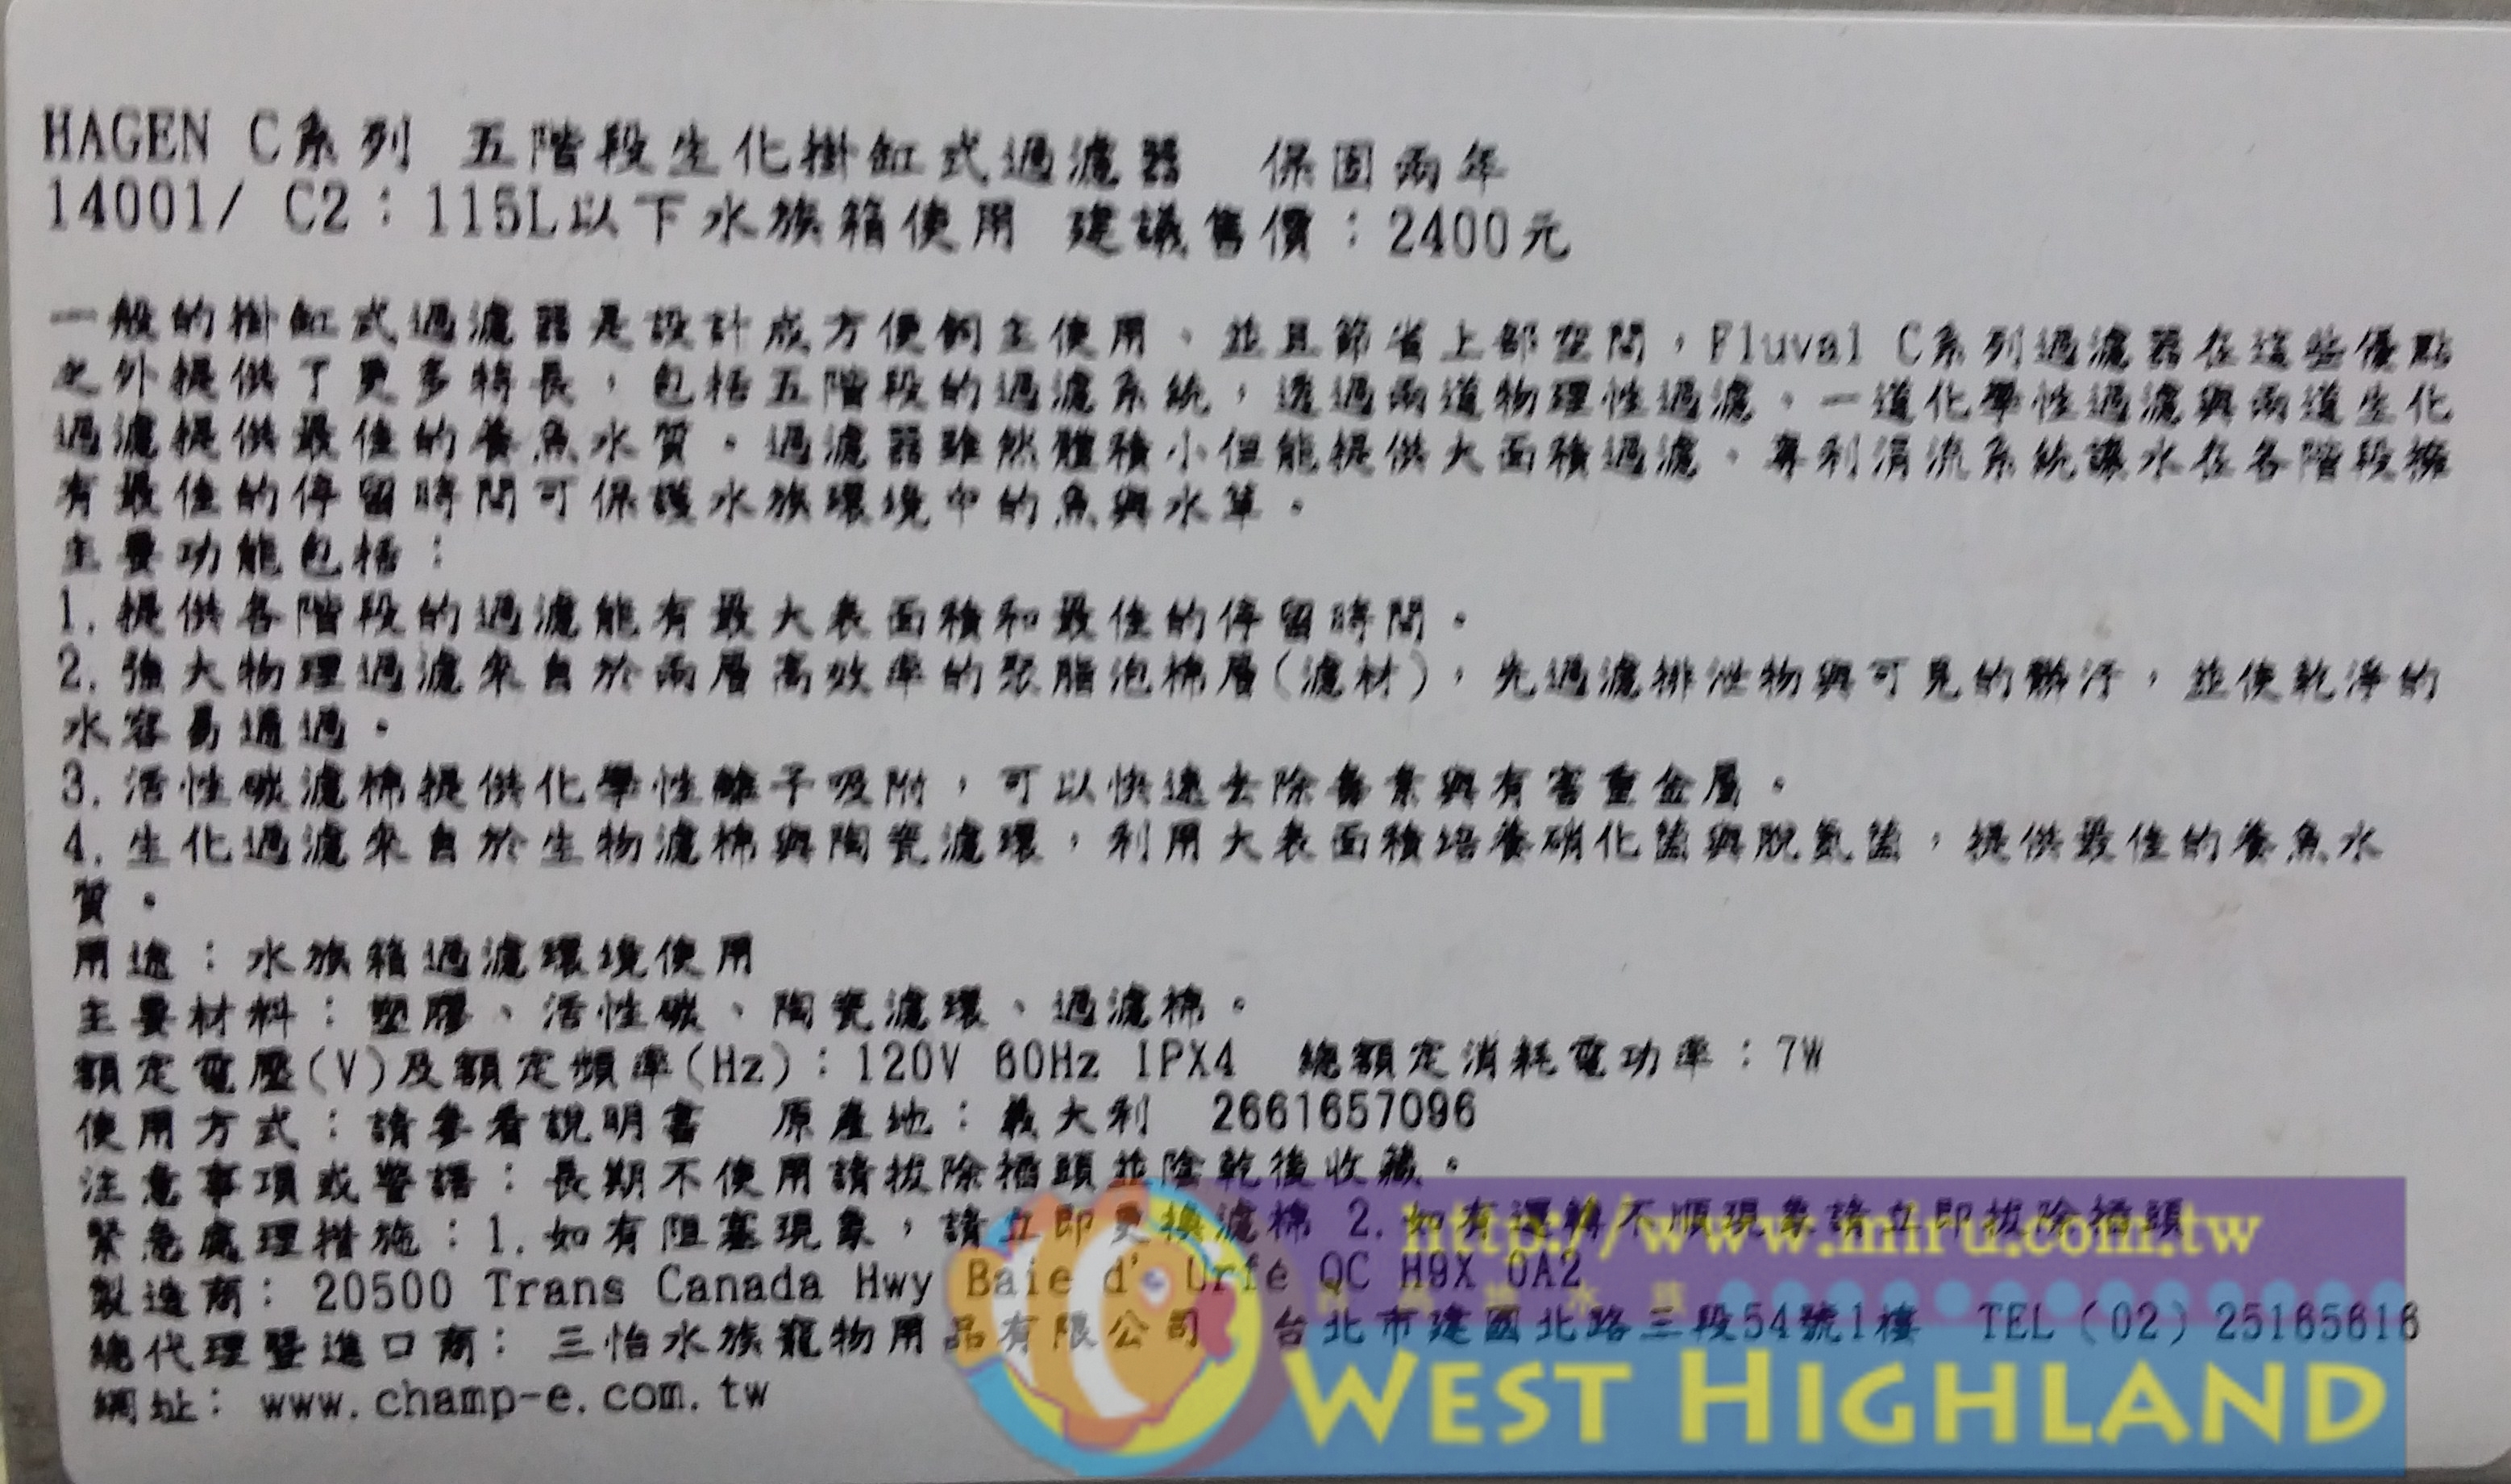 HAGEN C系列 五階段生化掛缸式過濾器 保固兩年
14001/ C2：115L以下水族箱使用 建議售價：2400元
一般的掛缸式過濾器是設計成方便飼主使用、並且節省上部空間，Fluval C系列過濾器在這些優點
之外提供了更多特長，包括五階段的過濾系統，透過兩道物理性過濾、一道化學性過濾與兩道生化
過濾提供最佳的養魚水質。過濾器雖然體積小但能提供大面積過濾、專利涓流系統讓水在各階段擁
有最佳的停留時間可保護水族環境中的魚與水草。
主要功能包括：
1.提供各階段的過濾能有最大表面積和最佳的停留時間。
2.強大物理過濾來自於兩層高效率的聚脂泡棉層(濾材)，先過濾排泄物與可見的髒汙，並使乾淨的
水容易通過。
3.活性碳濾棉提供化學性離子吸附，可以快速去除毒素與有害重金屬。
4.生化過濾來自於生物濾棉與陶瓷濾環，利用大表面積培養硝化菌與脫氮菌，提供最佳的養魚水
質。
用途：水族箱過濾環境使用
主要材料：塑膠、活性碳、陶瓷濾環、過濾棉。
額定電壓(V)及額定頻率(Hz)：120V 60Hz IPX4 總額定消耗電功率：7W
使用方式：請參看說明書 原產地：義大利 2661657096
注意事項或警語：長期不使用請拔除插頭並陰乾後收藏。
緊急處理措施：1.如有阻塞現象，請立即更換濾棉 2.如有運轉不順現象請立即拔除插頭
http://www.miru.com.tw
製造商: 20500 Trans Canada Hwy Baie d' Urfé QC H9X 0A2
總代理暨進口商: 三怡水族寵物用品有限公司 台北市建國北路三段54號1樓 TEL (02) 25165616
網址: www.champ-e.com.tw
WEST HIGHLAND